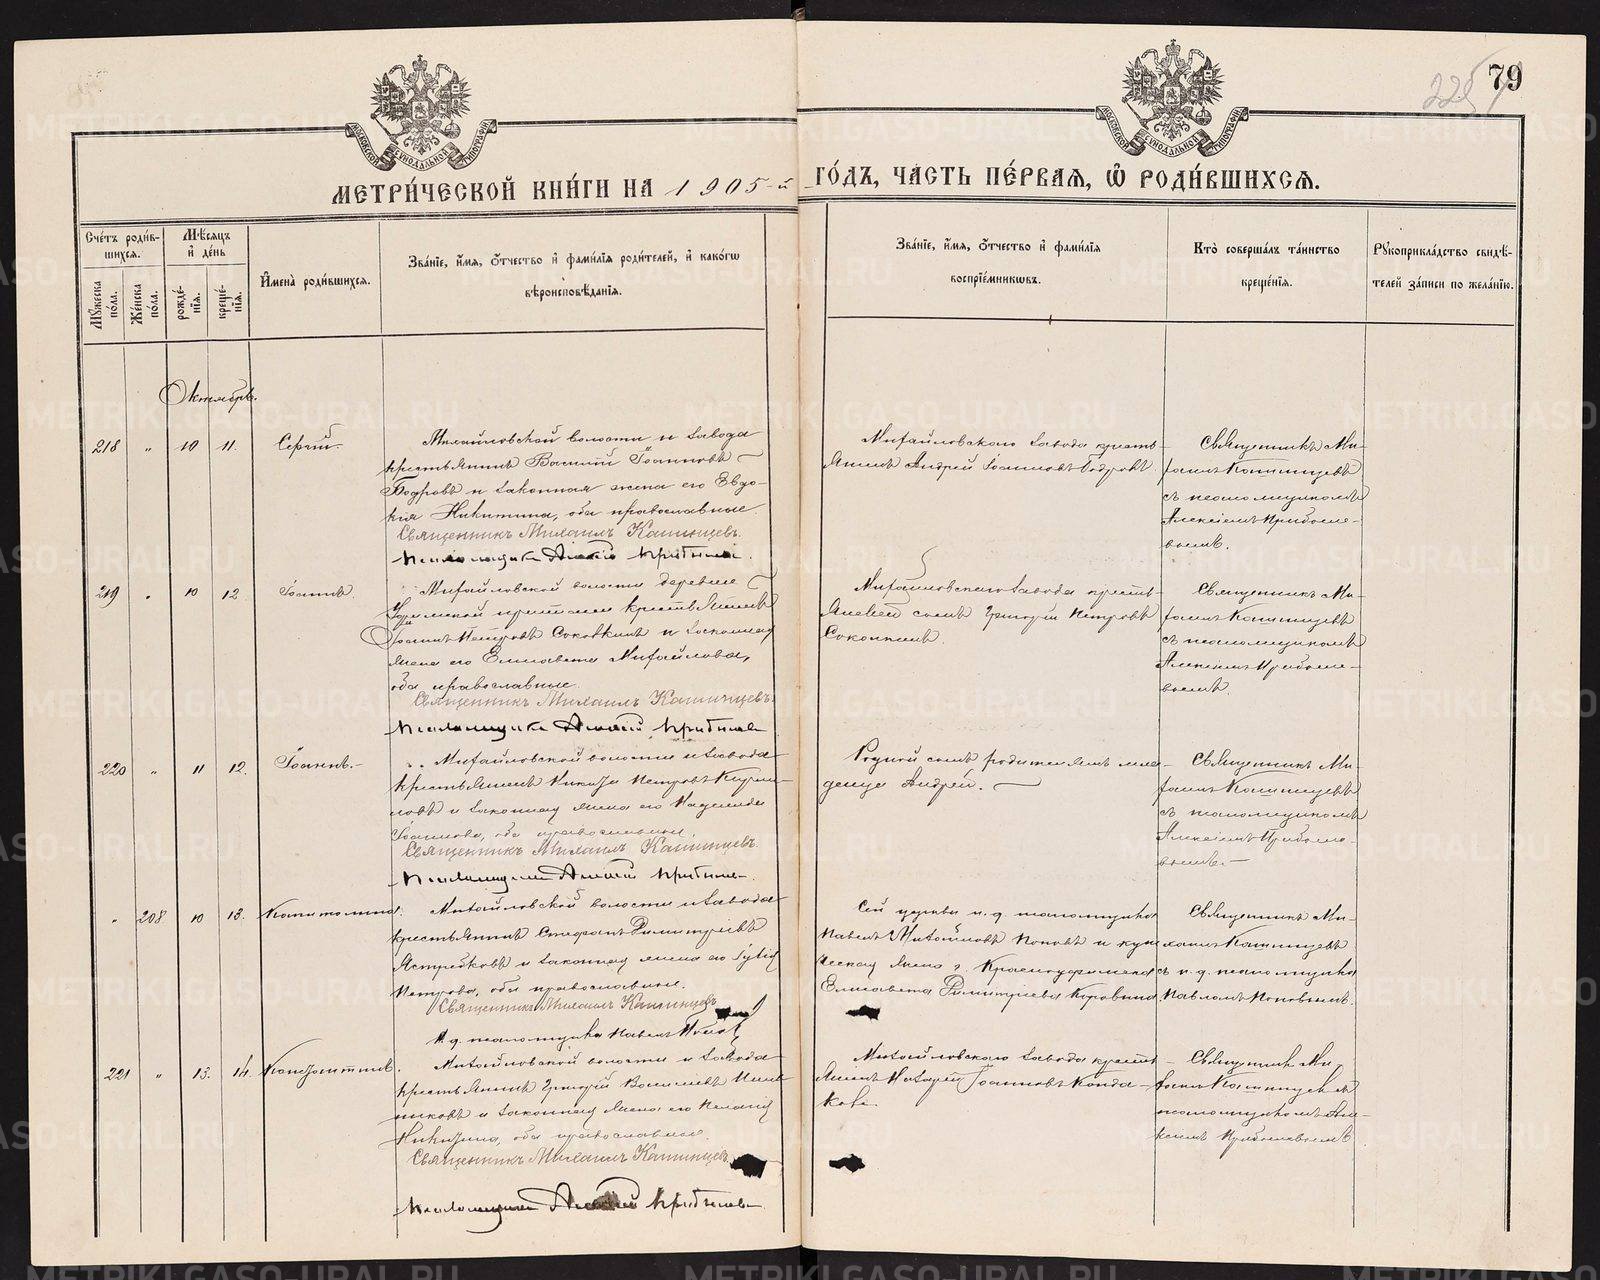 79
225
МЕТРИ́ЧЕСКОЙ КНИ́ГИ НА 1905-й ГО́ДЪ, ЧА́СТЬ ПЕ́РВАЯ, Ѽ РОДИ́ВШИХСЯ.
Сче́тъ роди́вшихся.
Мꙋ́жеска по́ла.
Же́нска по́ла.
Мѣ́сяцъ и҆ де́нь
рожде́нїя.
креще́нїя.
И҆мена̀ роди́вшихся.
Зва́нїе, и҆́мя, ѻ҆́тчество и҆ фами́лїя роди́телей, и҆ како́гѡ
вѣроисповѣ́данїя.
Зва́нїе, и҆́мя, ѻ҆́тчество и҆ фами́лїя
воспрїе́мникѡвъ.
Кто̀ соверша́лъ та́инство
креще́нїя.
Рꙋкоприкла́дство свидѣ́-
телей за́писи по жела́нїю.
Октябрь.
218 " 10 11. Сергій.
Михайловской волости и завода
крестьянинъ Василій Іоанновъ
Бодровъ и законная жена его Евдо-
кія Никитина, оба православные.
Священникъ Михаилъ Кашинцевъ.
Псаломщикъ Алексій
Михайловскаго завода кресть-
янинъ Андрей Іоанновъ Бодровъ.
Священникъ Ми-
хаилъ Кашинцевъ
съ псаломщикомъ
Алексіемъ
219 " 10 12. Іоаннъ.
Михайловской волости деревни
крестьянинъ
Іоаннъ Петровъ Соковкинъ и законная
жена его Елисавета Михайлова,
оба православные.
Священникъ Михаилъ Кашинцевъ.
Псаломщикъ Алексій
Михайловскаго завода кресть-
сынъ Григорій Петровъ
Священникъ Ми-
хаилъ Кашинцевъ
съ псаломщикомъ
Алексіемъ
220 " 11 12. Іоаннъ.
Михайловской волости и завода
крестьянинъ Никита Петровъ
и законная жена его Надежда
Іоаннова, оба православные.
Священникъ Михаилъ Кашинцевъ.
Псаломщикъ Алексій
Родной сынъ родителямъ мла-
денца Андрей.
Священникъ Ми-
хаилъ Кашинцевъ
съ псаломщикомъ
Алексіемъ
" 208 10 13. Капитолина.
Михайловской волости и завода
крестьянинъ Стефанъ Димитріевъ
Ястребковъ и законная жена его
Петрова, оба православные.
Священникъ Михаилъ Кашинцевъ
И. д. псаломщика Павелъ Поповъ
Сей церкви и. д. псаломщика
Павелъ Михайловъ Поповъ и купе-
ческая жена г. Красноуфимска
Елисавета Димитріева
Священникъ Ми-
хаилъ Кашинцевъ
съ и. д. псаломщика
Павломъ Поповымъ.
221 " 13. 14.
Михайловской волости и завода
крестьянинъ Григорій Васильевъ
и законная жена его Пелагія
Никитина, оба православные.
Священникъ Михаилъ Кашинцевъ.
Псаломщикъ Алексій
Михайловскаго завода кресть-
янинъ Іоанновъ Конда-
ковъ.
Священникъ Ми-
хаилъ Кашинцевъ съ
псаломщикомъ Але-
ксіемъ
METRIKI.GASO-URAL.RU